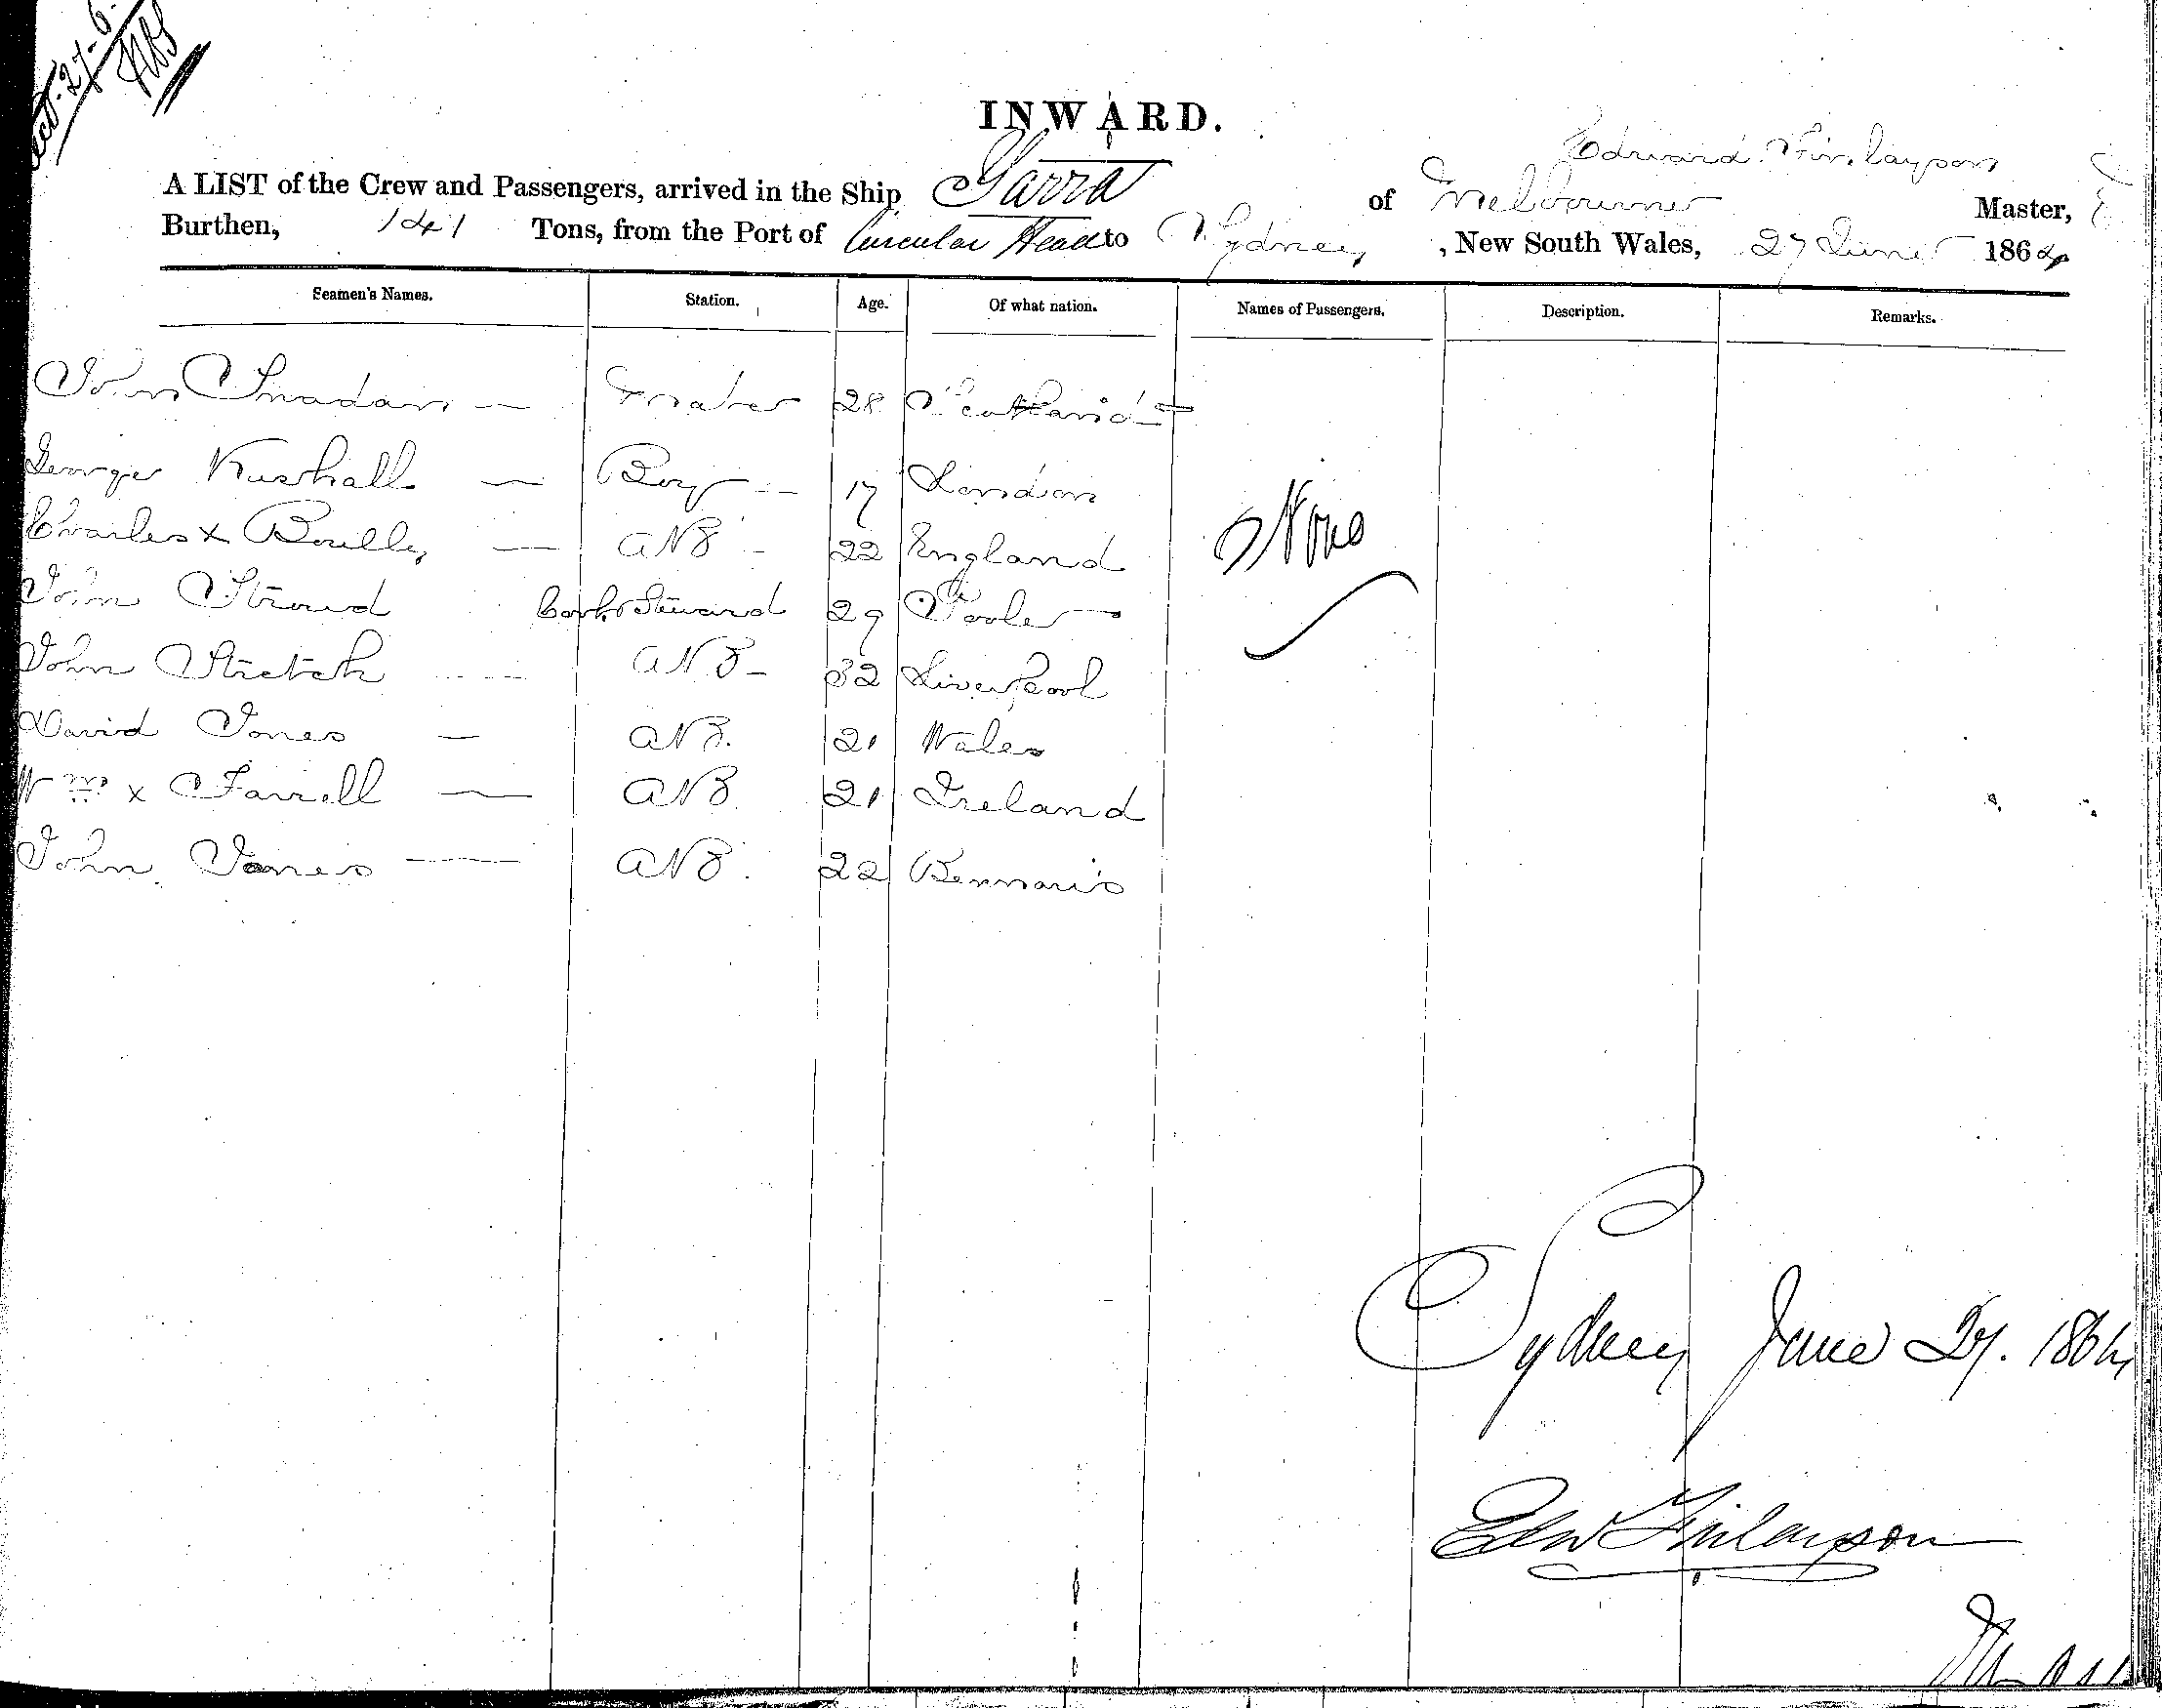 27-6
INWARD.
Edward Finlayson
A LIST of the Crew and Passengers, arrived in the Ship Yarra of Melbourne Master,
Burthen, 141 Tons, from the Port of Circular Head to Sydney, New South Wales, 27 June 1864
Seamen's Names. Station. Age. Of what nation. Names of Passengers. Description. Remarks.
John Mate 28 Scotland
George Boy 17 London
Charles x 22 England
John Stroud Cook & Steward 29 Poole
None
John Stretch 32 Liverpool
David Jones 21 Wales
Wm x Farrell 21 Ireland
John Jones 22
Sydney June 27. 1864
Edw Finlayson